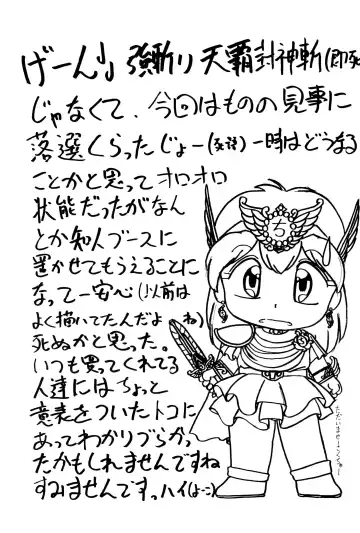 げーん」」強斬り 天覇封神斬(即死
じゃなくて、今回はものの見事に
落選くらったじょー(死語)一時はどうなる
ことかと思ってオロオロ
状態だったがなん
とか知人ブースに
置かせてもらえることに
なって一安心(以前は
よく描いてたんだよね)
死ぬかと思った。
いつも買ってくれてる
人達にはちょっと
意表をついたトコに
あってわかりづらかっ
たかもしれませんですね
すみませんですっハイ(よーこ)
右